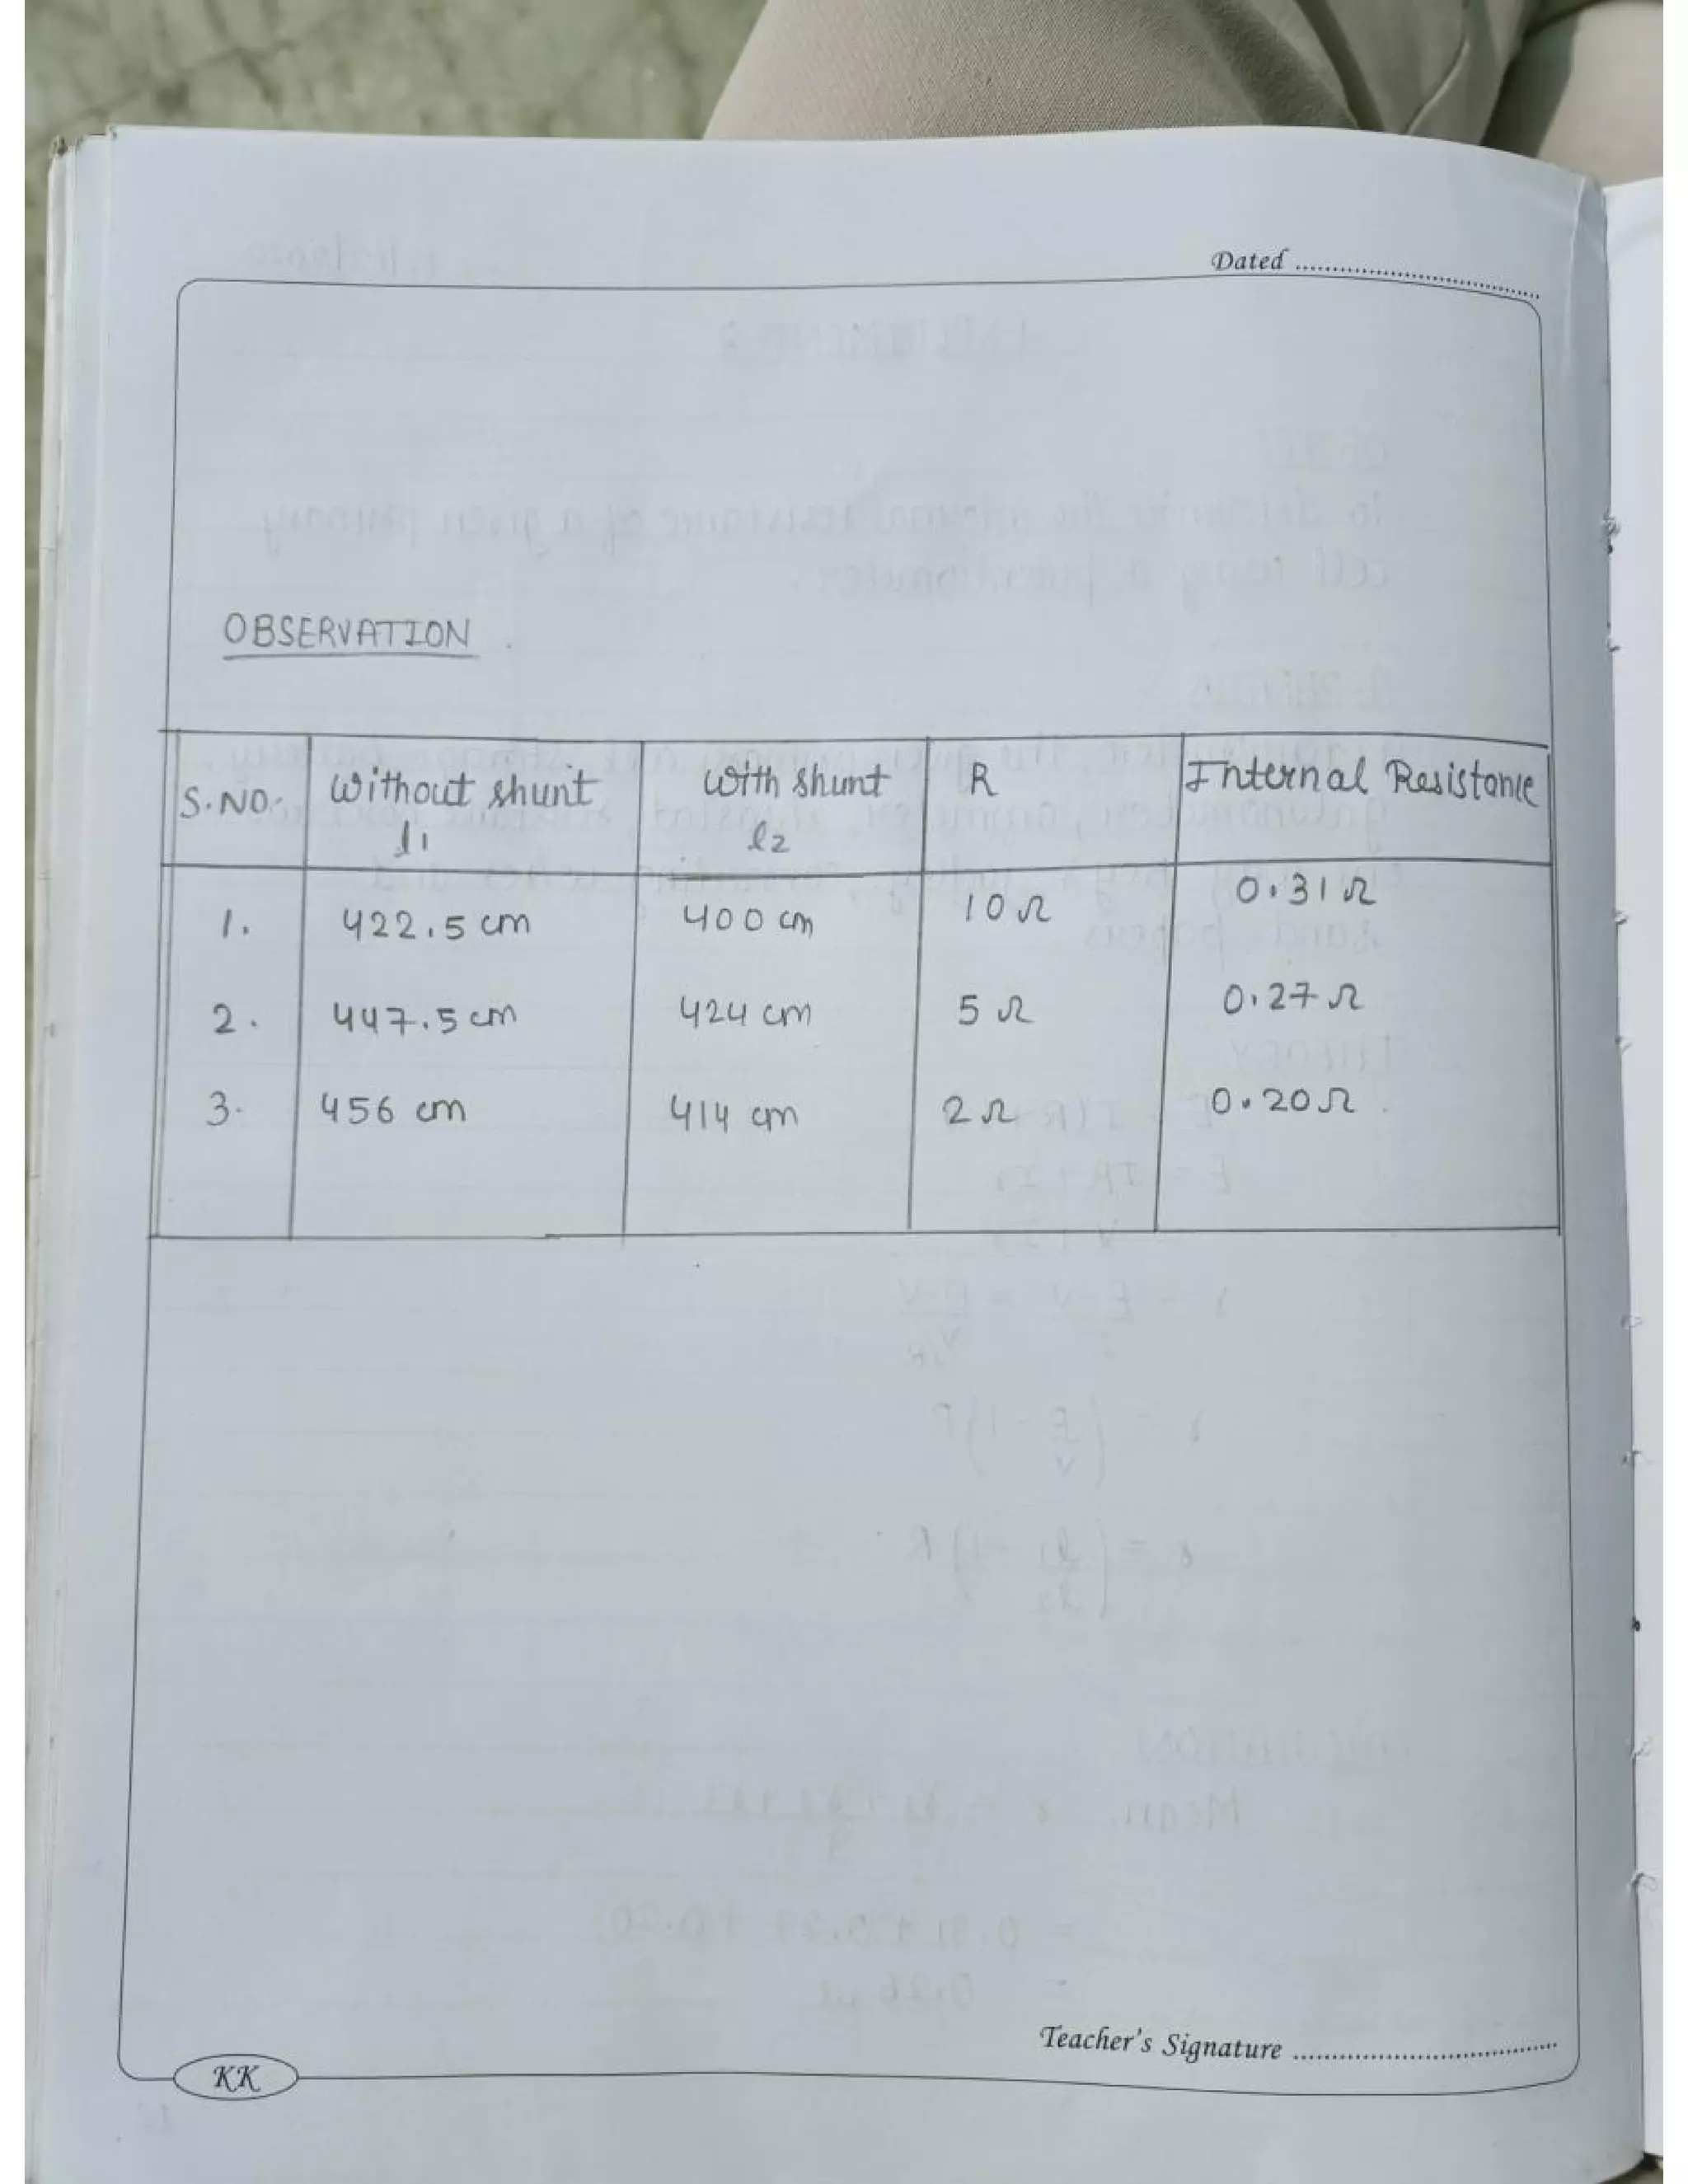 Dated
OBSERVATION
S.NO. Without shunt l1 With shunt l2 R Internal Resistance
1. 422.5 cm 400 cm 10 Ω 0.31 Ω
2. 447.5 cm 424 cm 5 Ω 0.27 Ω
3. 456 cm 414 cm 2 Ω 0.20 Ω
Teacher's Signature
KK